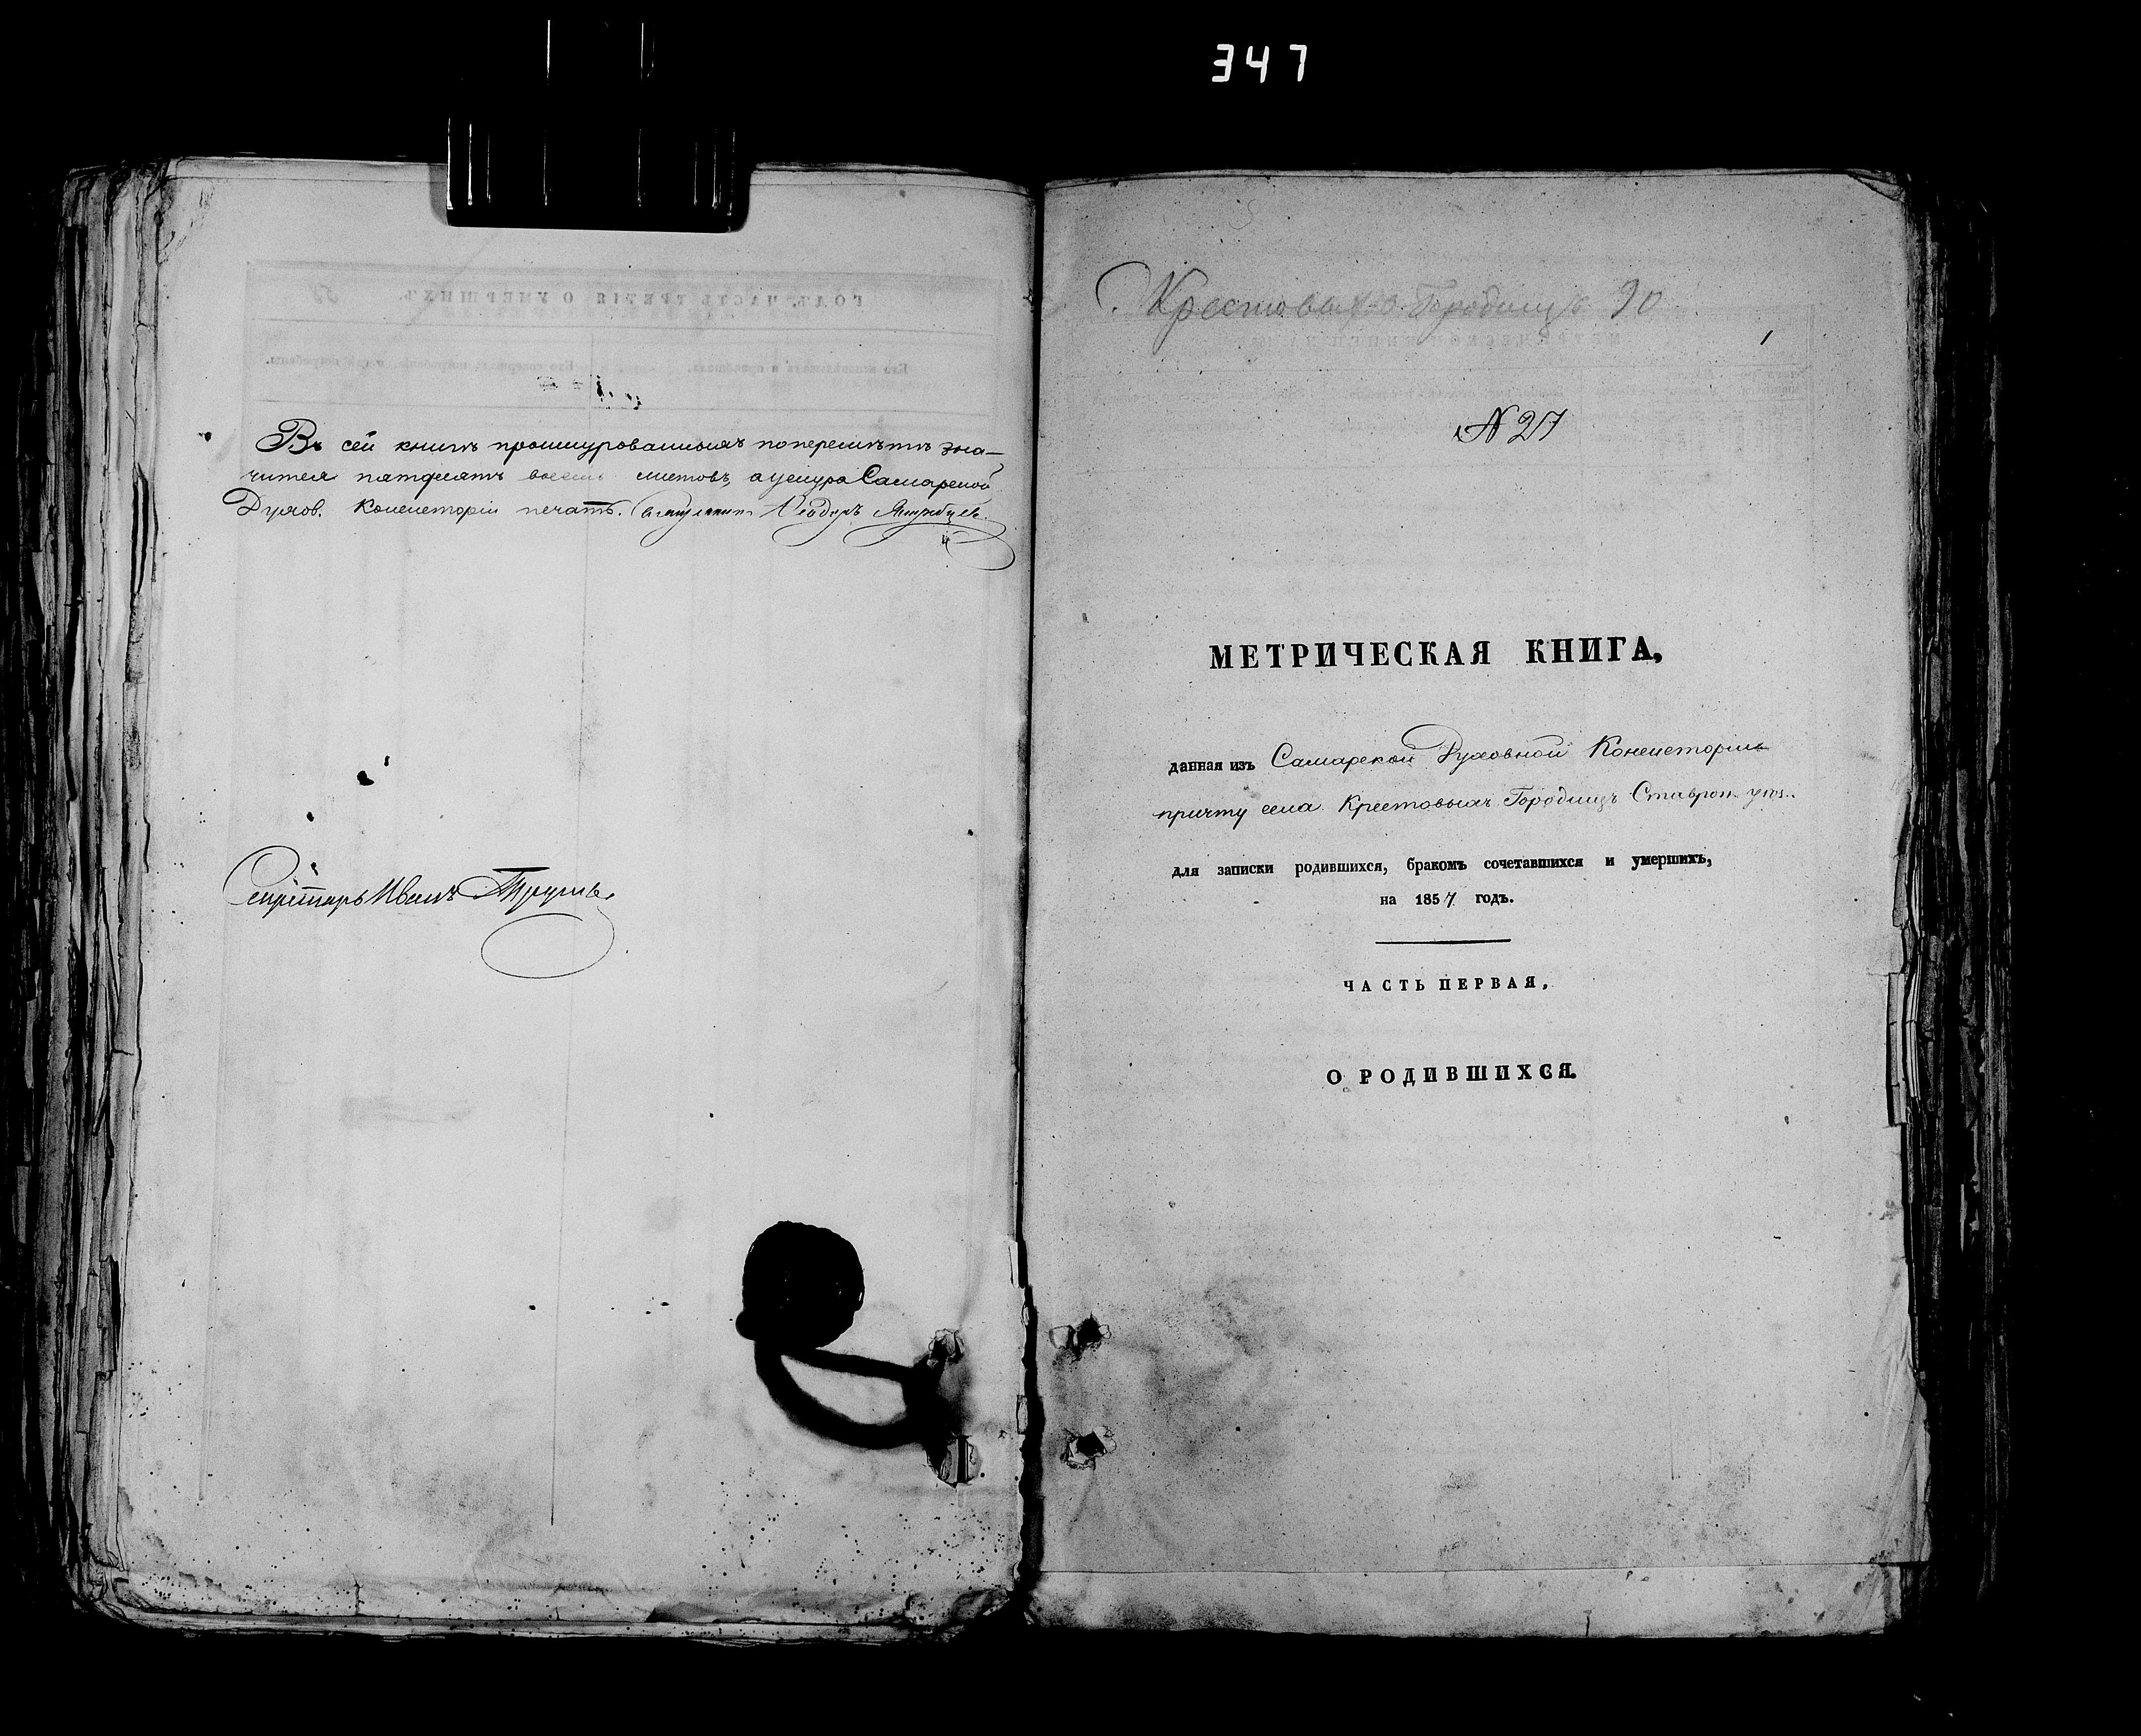 347
Въ сей книгѣ прошнурованныхъ по перемѣтѣ зна-
чится пятдесятъ восемь листовъ, а у снура Самарской
Духов. Консисторіи печать.
Секретарь Иванъ
Крестовыхъ Городищъ 90
1
№ 27
МЕТРИЧЕСКАЯ КНИГА,
данная изъ Самарской Духовной Консисторіи
причту села Крестовыхъ Городищъ Ставроп. уѣз.
для записки родившихся, бракомъ сочетавшихся и умершихъ,
на 1857 годъ.
ЧАСТЬ ПЕРВАЯ,
О РОДИВШИХСЯ.